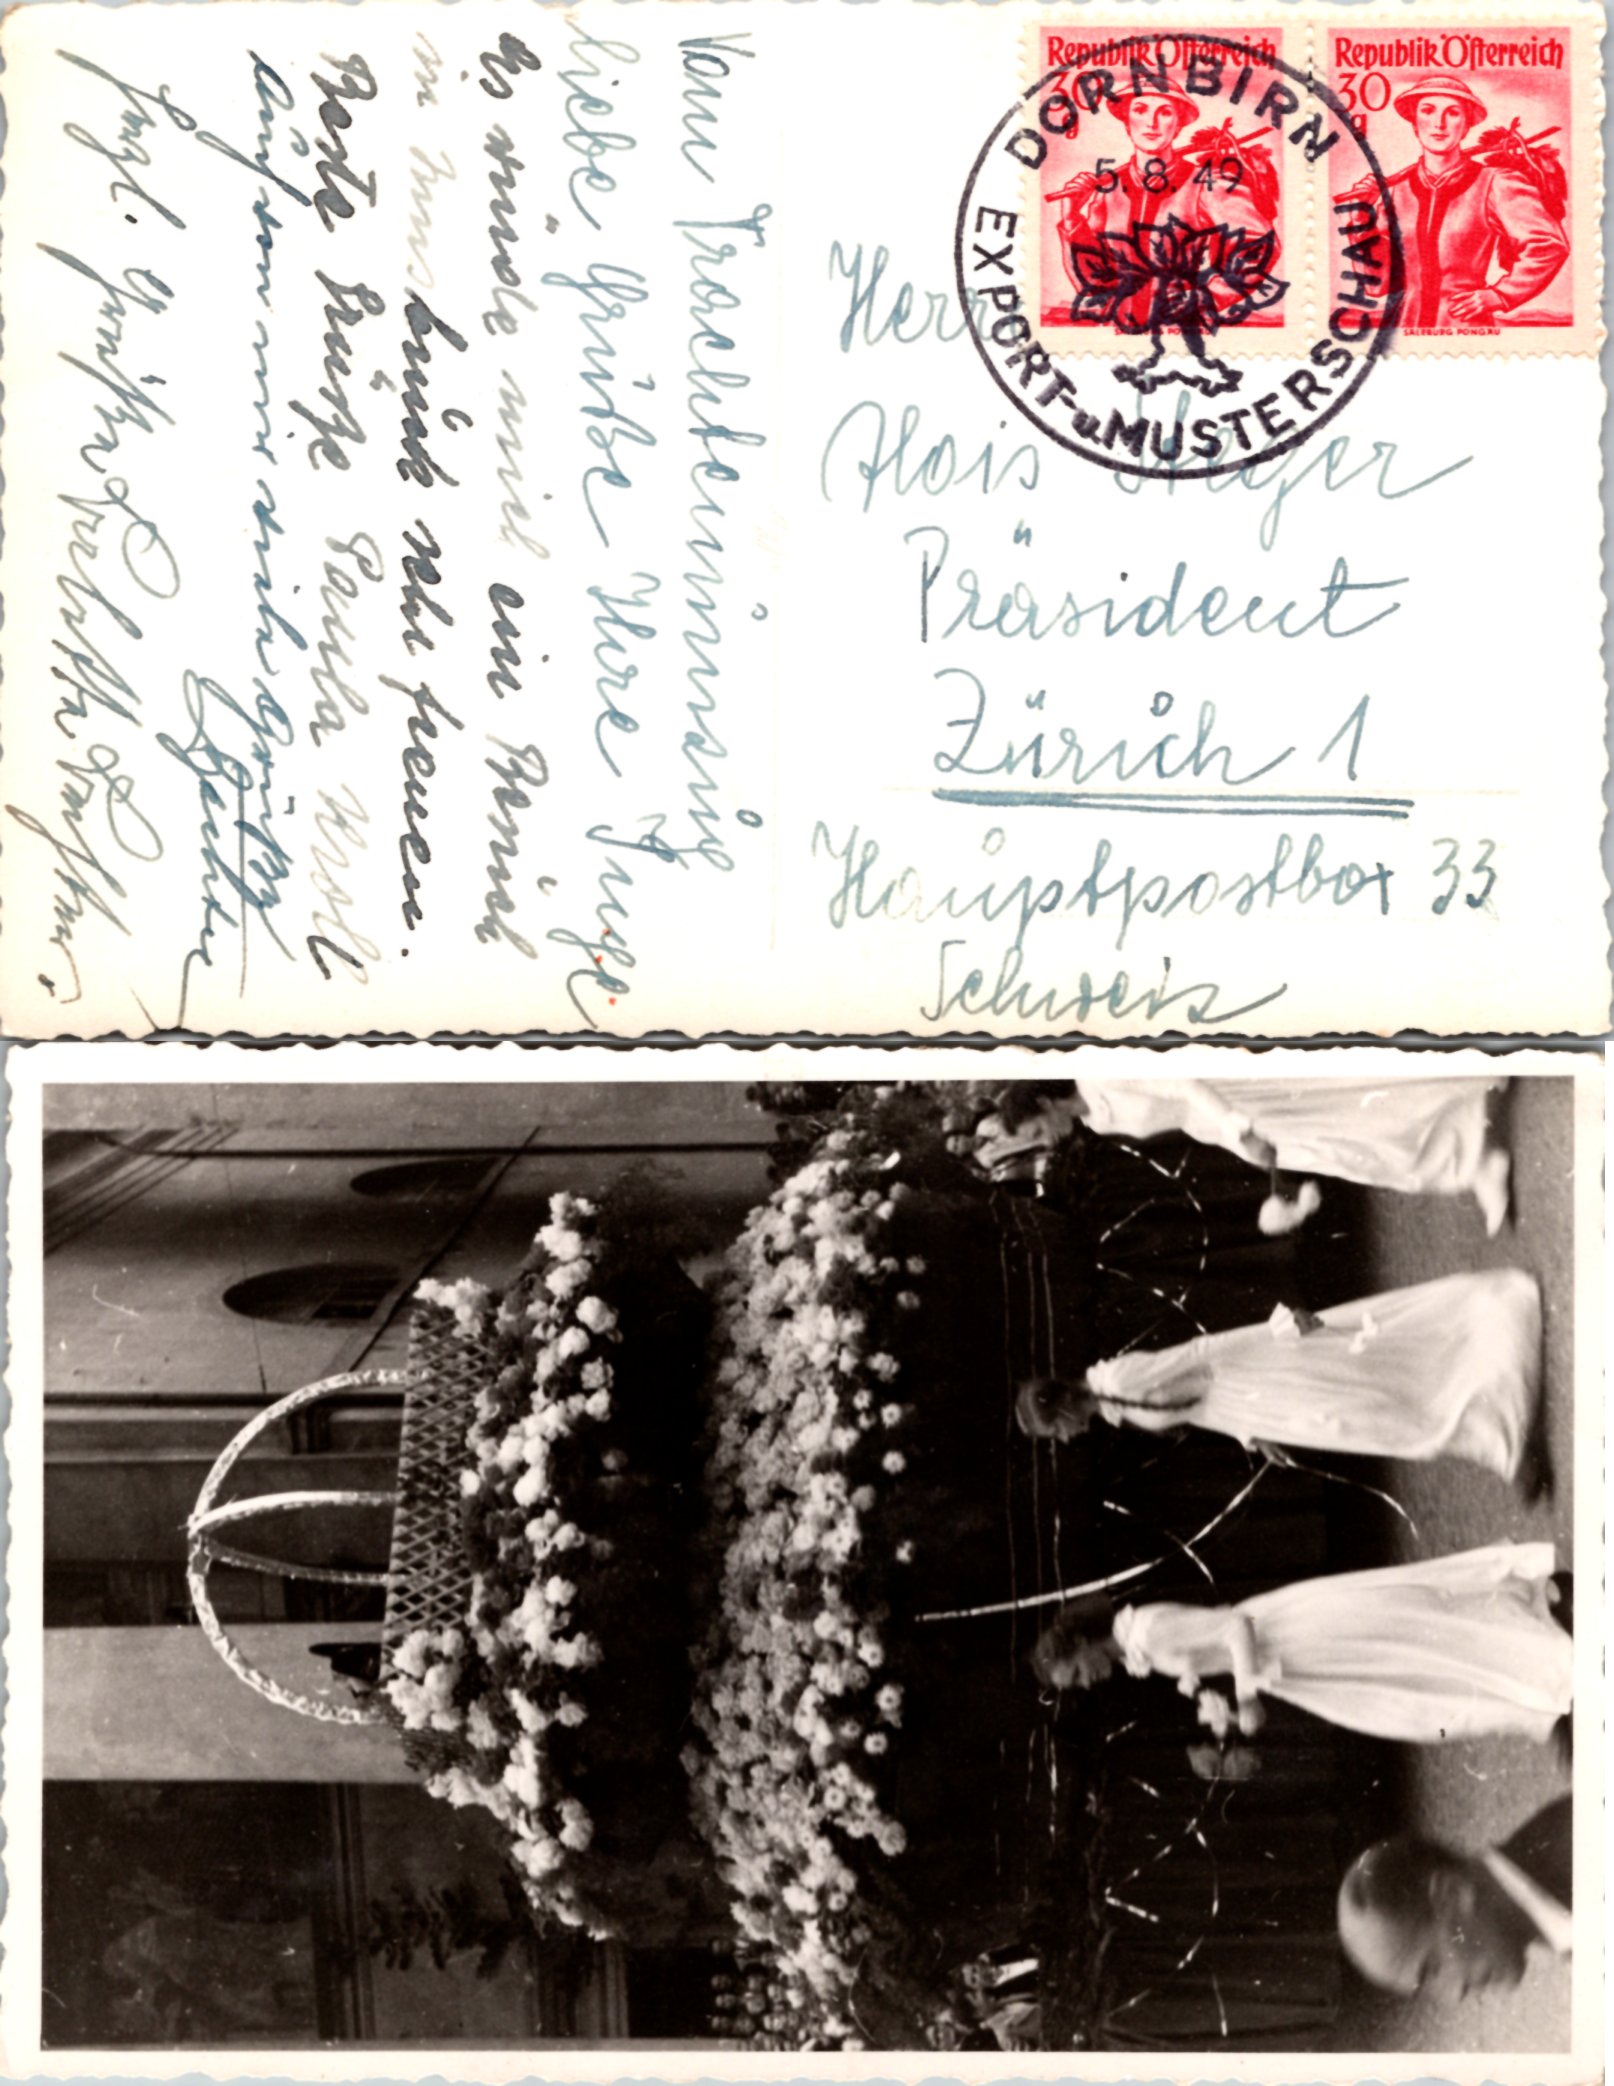 Republik Österreich
30
g
SALZBURG PONGAU
Republik Österreich
30
g
SALZBURG PONGAU
DORNBIRN
5. 8. 49
EXPORT- u. MUSTERSCHAU
Herrn
Alois Steger
Präsident
Zürich 1
Hauptpostbox 33
Schweiz
Vom
liebe Grüße Ihre Inge
Es würde mich ein Besuch
in Inns bruck sehr freuen.
Beste Grüße Paula
Auf
Herzl. Grüße